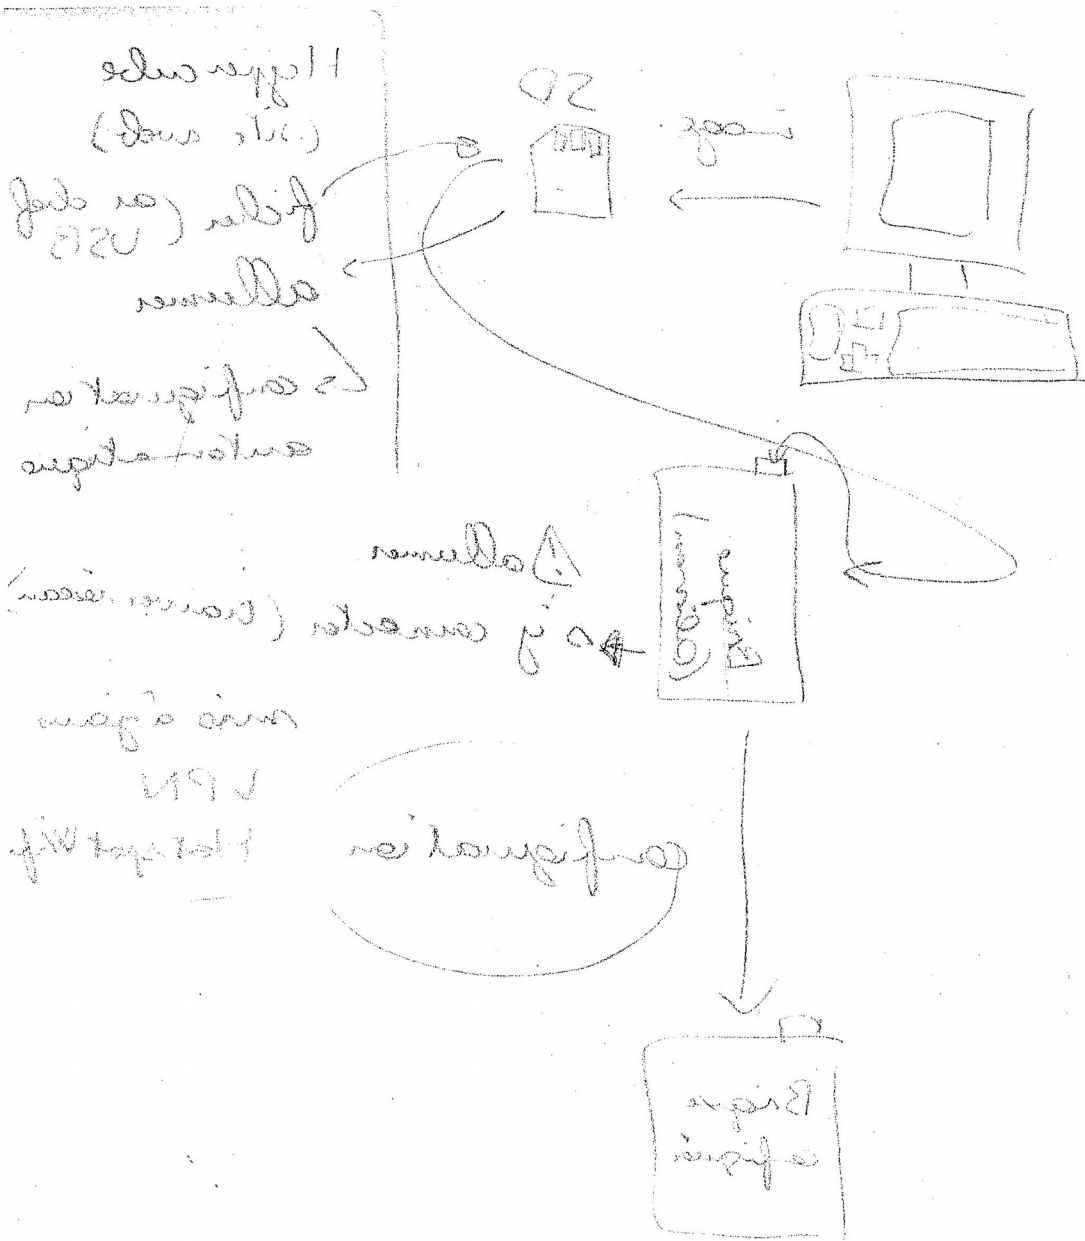 Hypercube
(site web)
fichier (ou clef
USB)
allumer
↳ configuration
automatique
SD
image
Brique
(
allumer
→ s'y connecter (trouver réseau)
mis à jour
VPN
Hotspot Wifi
configuration
Brique
configuré